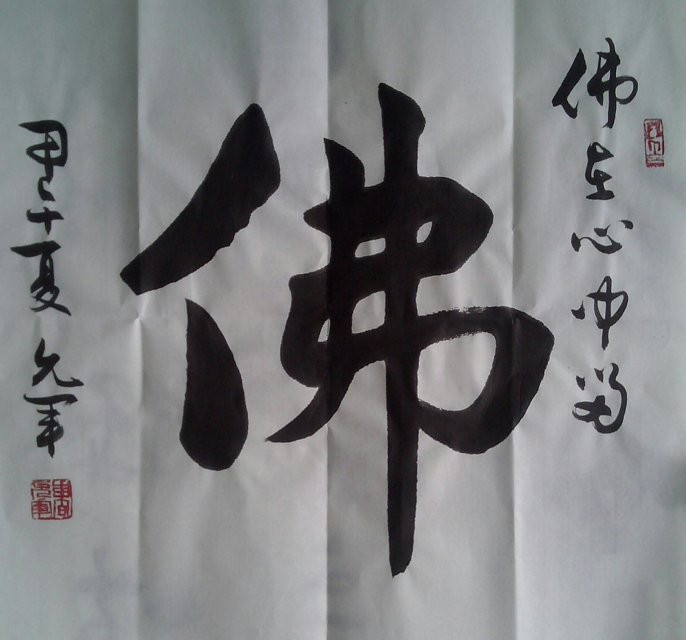 佛在心中留
佛
甲午夏 允军